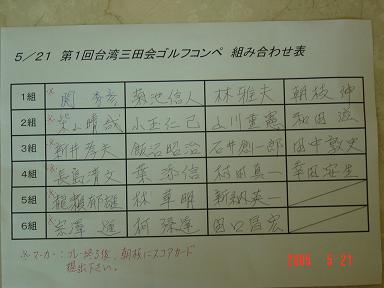 5/21 第1回台湾三田会ゴルフコンペ 組み合わせ表
1組 ※関 秀彦 菊池信人 林雅夫 朝枝 伸
2組 ※柴山晴哉 小玉仁己 山川重憲 和田 滋
3組 ※新井孝夫 飯沼昭治 石井創一郎 田中敦史
4組 ※長島清文 葉添信 村田真一 幸田安生
5組 ※龍頭郁雄 林 華明 新納英一
6組 ※宗澤 進 柯隆達 田口昌宏
※マーカー:プレー終了後、朝枝にスコアカード
提出下さい。
2005 5 21